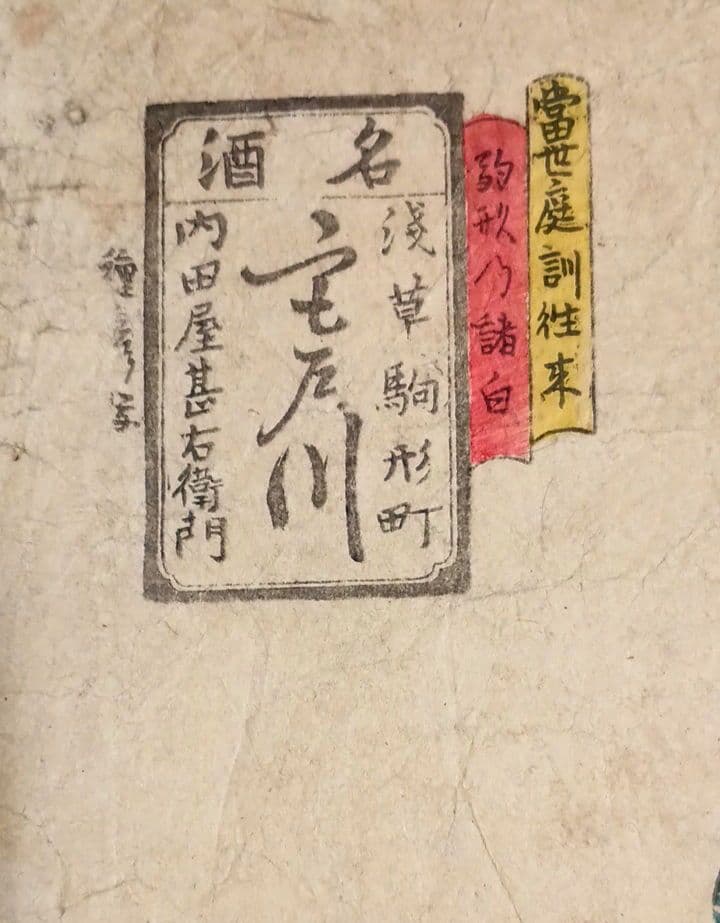 當世庭訓往来
駒形乃諸白
名酒
浅草駒形町
宮戸川
内田屋甚右衛門
種彦